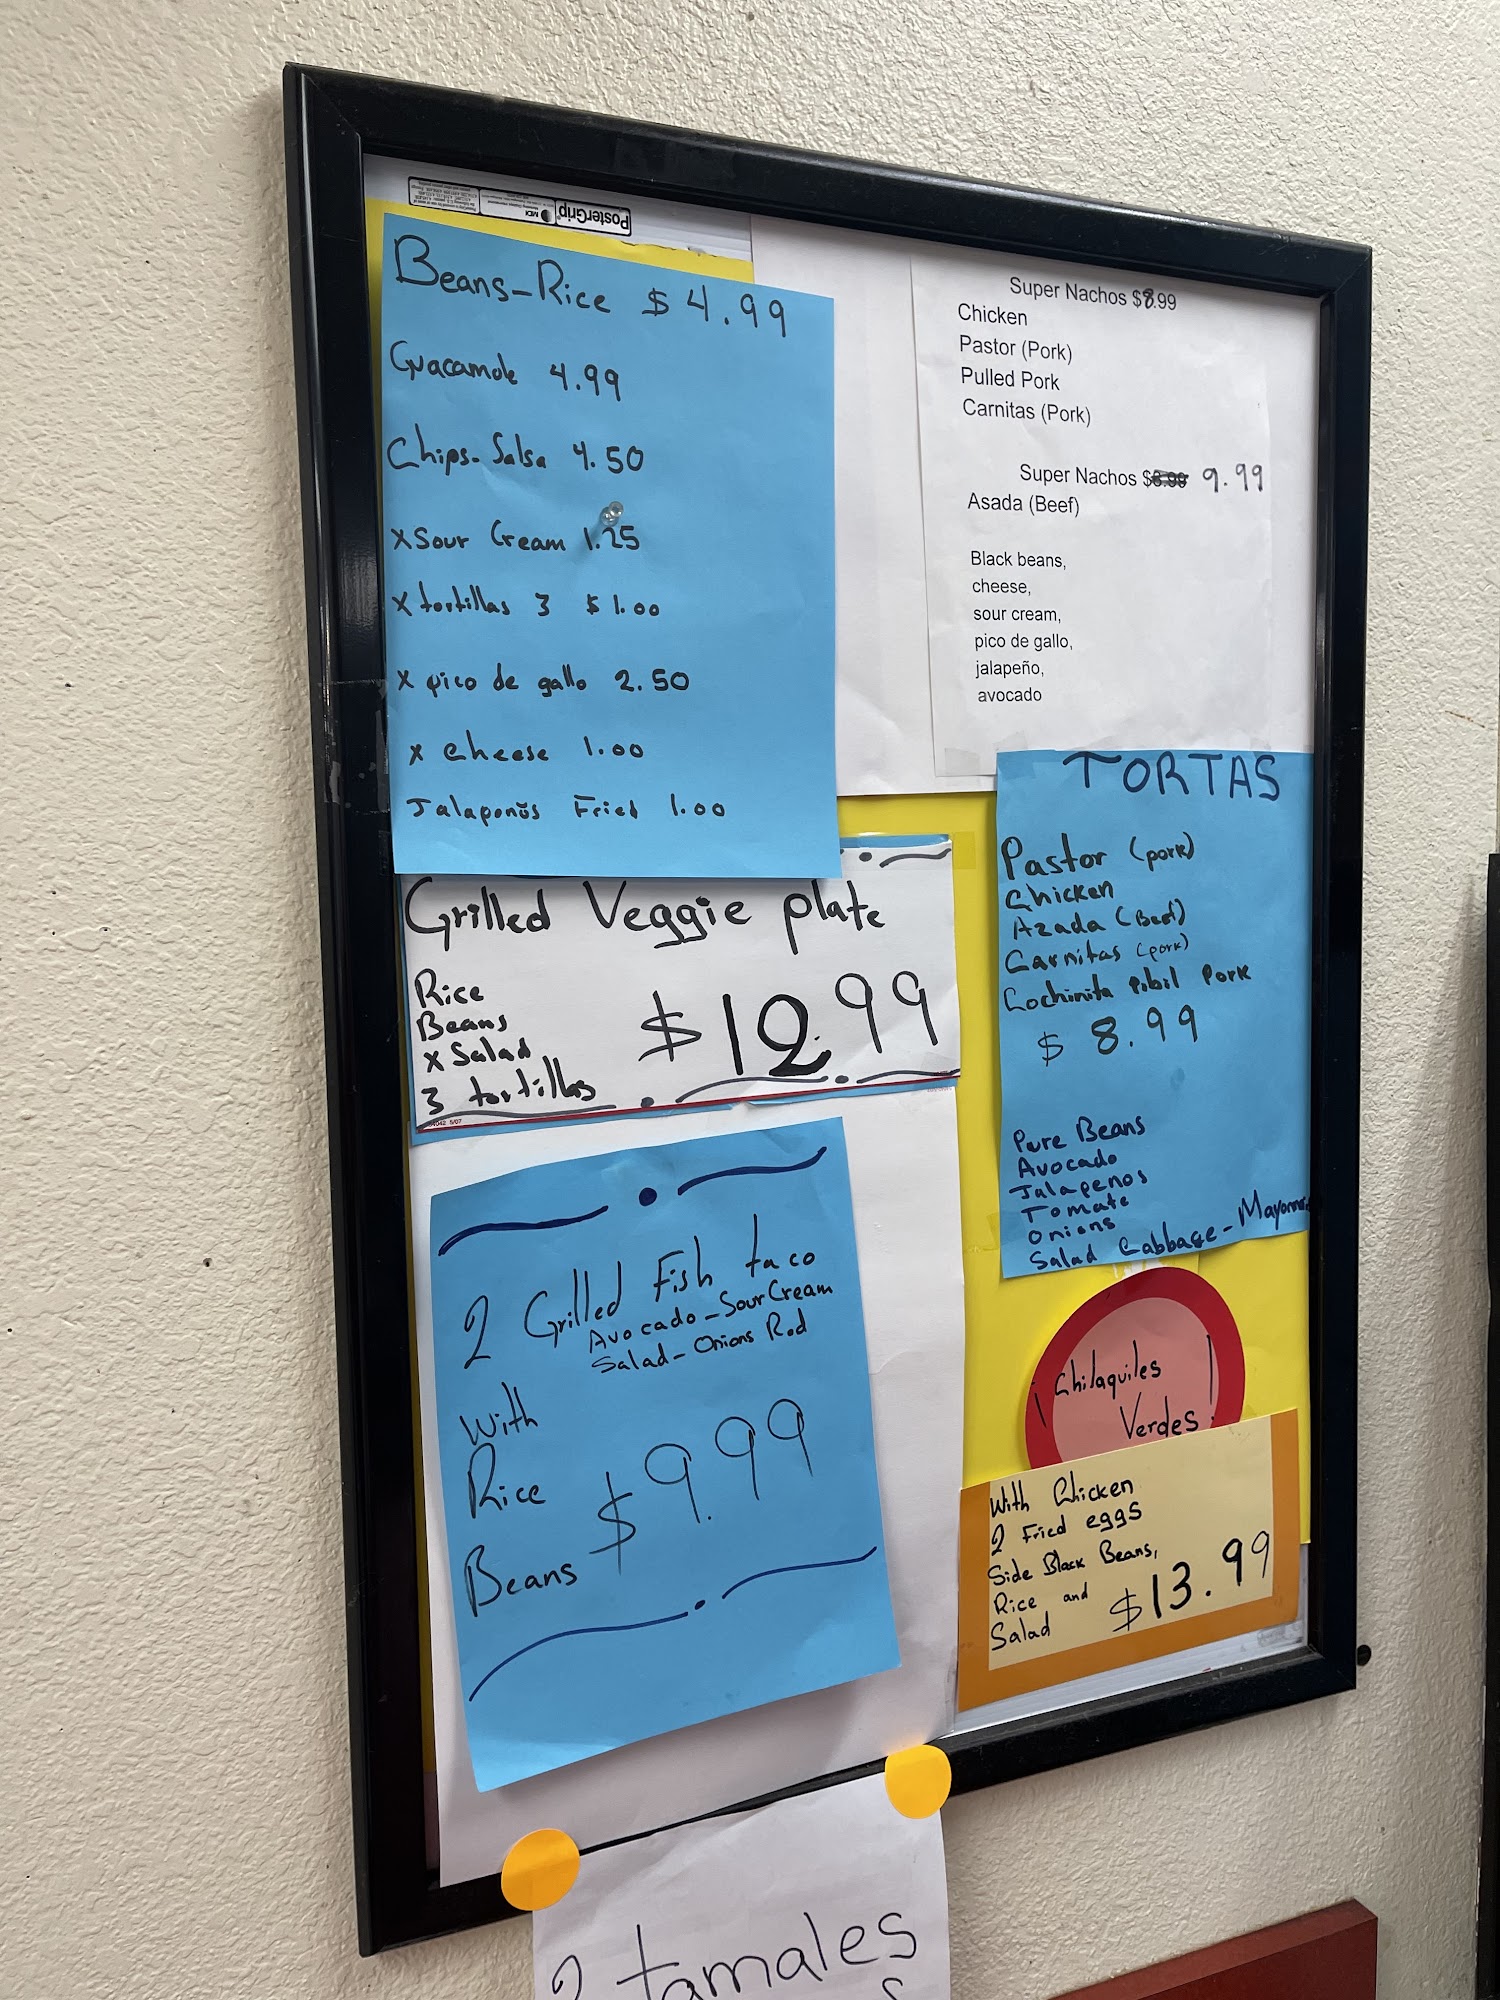 PosterGrip
MDI
Beans-Rice $4.99
Guacamole 4.99
Chips-Salsa 4.50
x Sour Cream 1.25
x tortillas 3 $1.00
x pico de gallo 2.50
x cheese 1.00
Jalaponos Fried 1.00
Super Nachos $8.99
Chicken
Pastor (Pork)
Pulled Pork
Carnitas (Pork)
Super Nachos $6.99 9.99
Asada (Beef)
Black beans,
cheese,
sour cream,
pico de gallo,
jalapeño,
avocado
TORTAS
Pastor (pork)
Chicken
Azada (Beef)
Carnitas (pork)
Cochinita pibil Pork
$8.99
Pure Beans
Avocado
Jalapenos
Tomate
Onions
Salad Cabbage-
Grilled Veggie plate
Rice
Beans
x Salad
3 tortillas
$12.99
2 Grilled Fish taco
Avocado-Sour Cream
Salad-Onions Red
With
Rice
Beans
$9.99
¡Chilaquiles
Verdes!
With Chicken
2 Fried eggs
Side Black Beans,
Rice and
Salad
$13.99
2 tamales